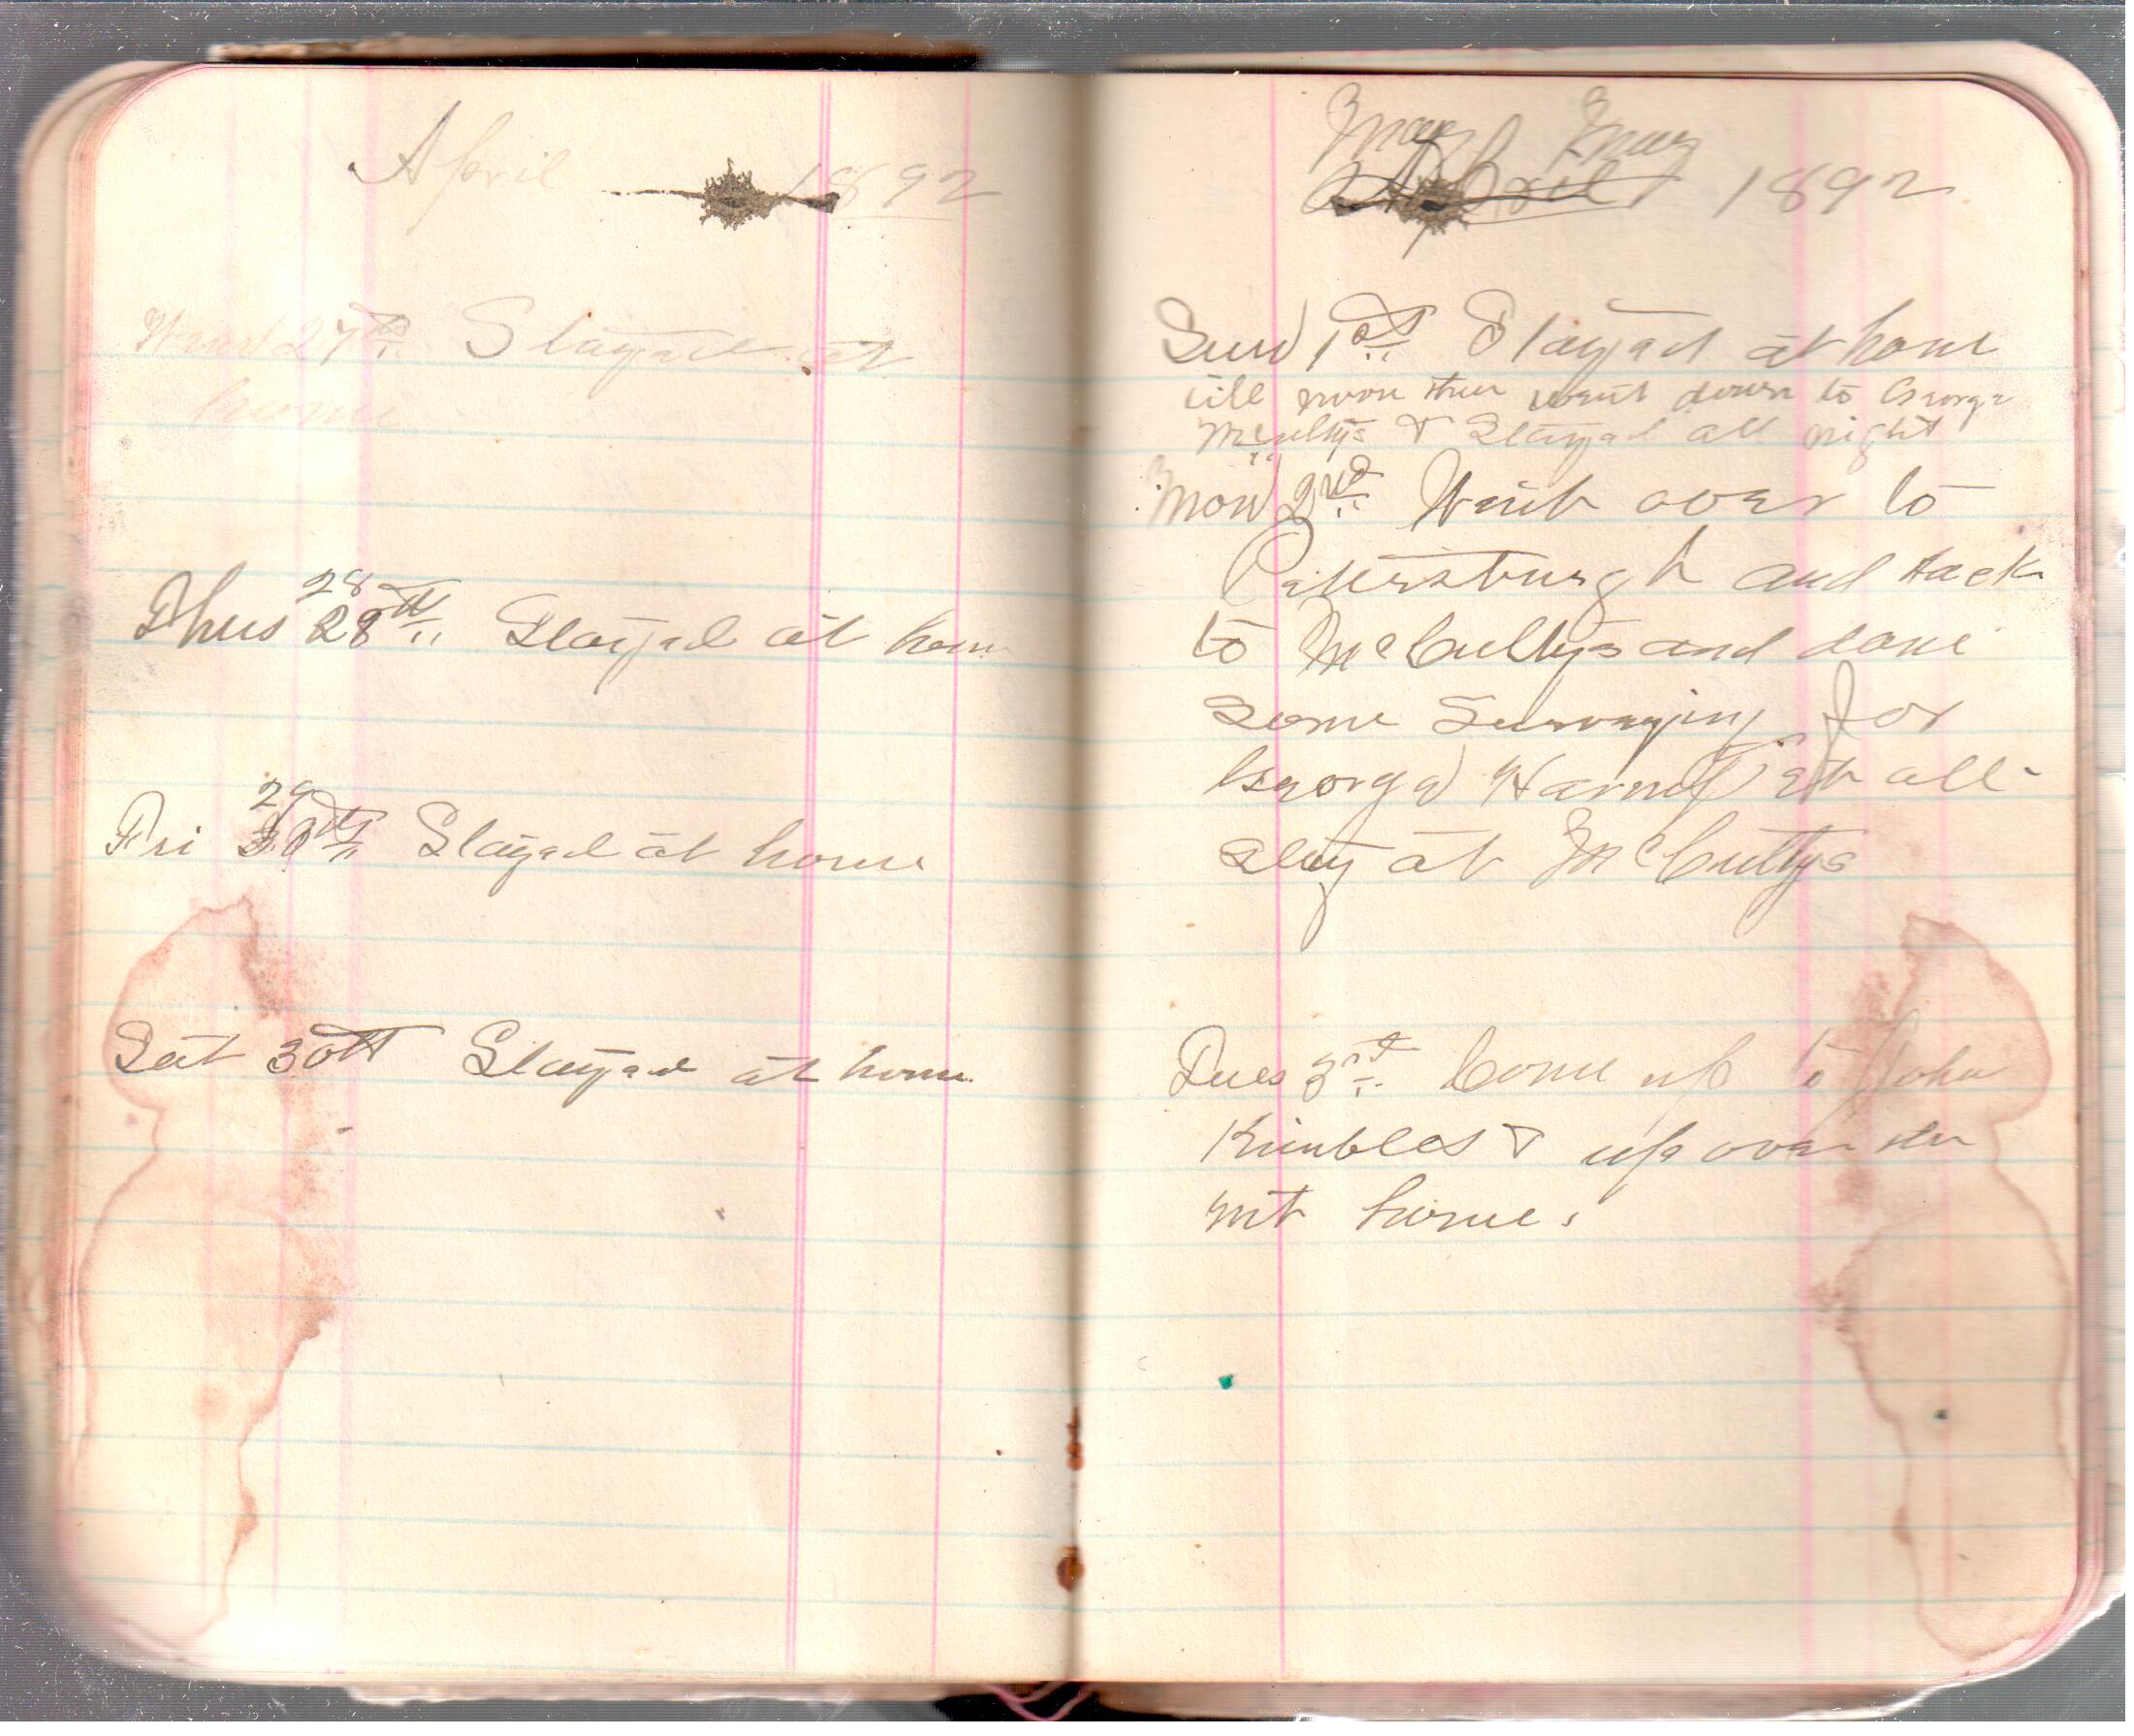 April 1892
Wend 27th Stayed at
home
28
Thus 28th Stayed at hom
29
Fri 30th Stayed at home
Sat 30th Stayed at home
May May
April 1892
Sund 1st Stayed at home
till noon then went down to George
McCultys & Stayed all night
Mond 2nd Went over to
Petersburgh and back
to McCultys and done
some Surveying for
George Harness et all
stay at McCultys
Tues 3rd Come up to John
Kimbles & up over the
mt home.